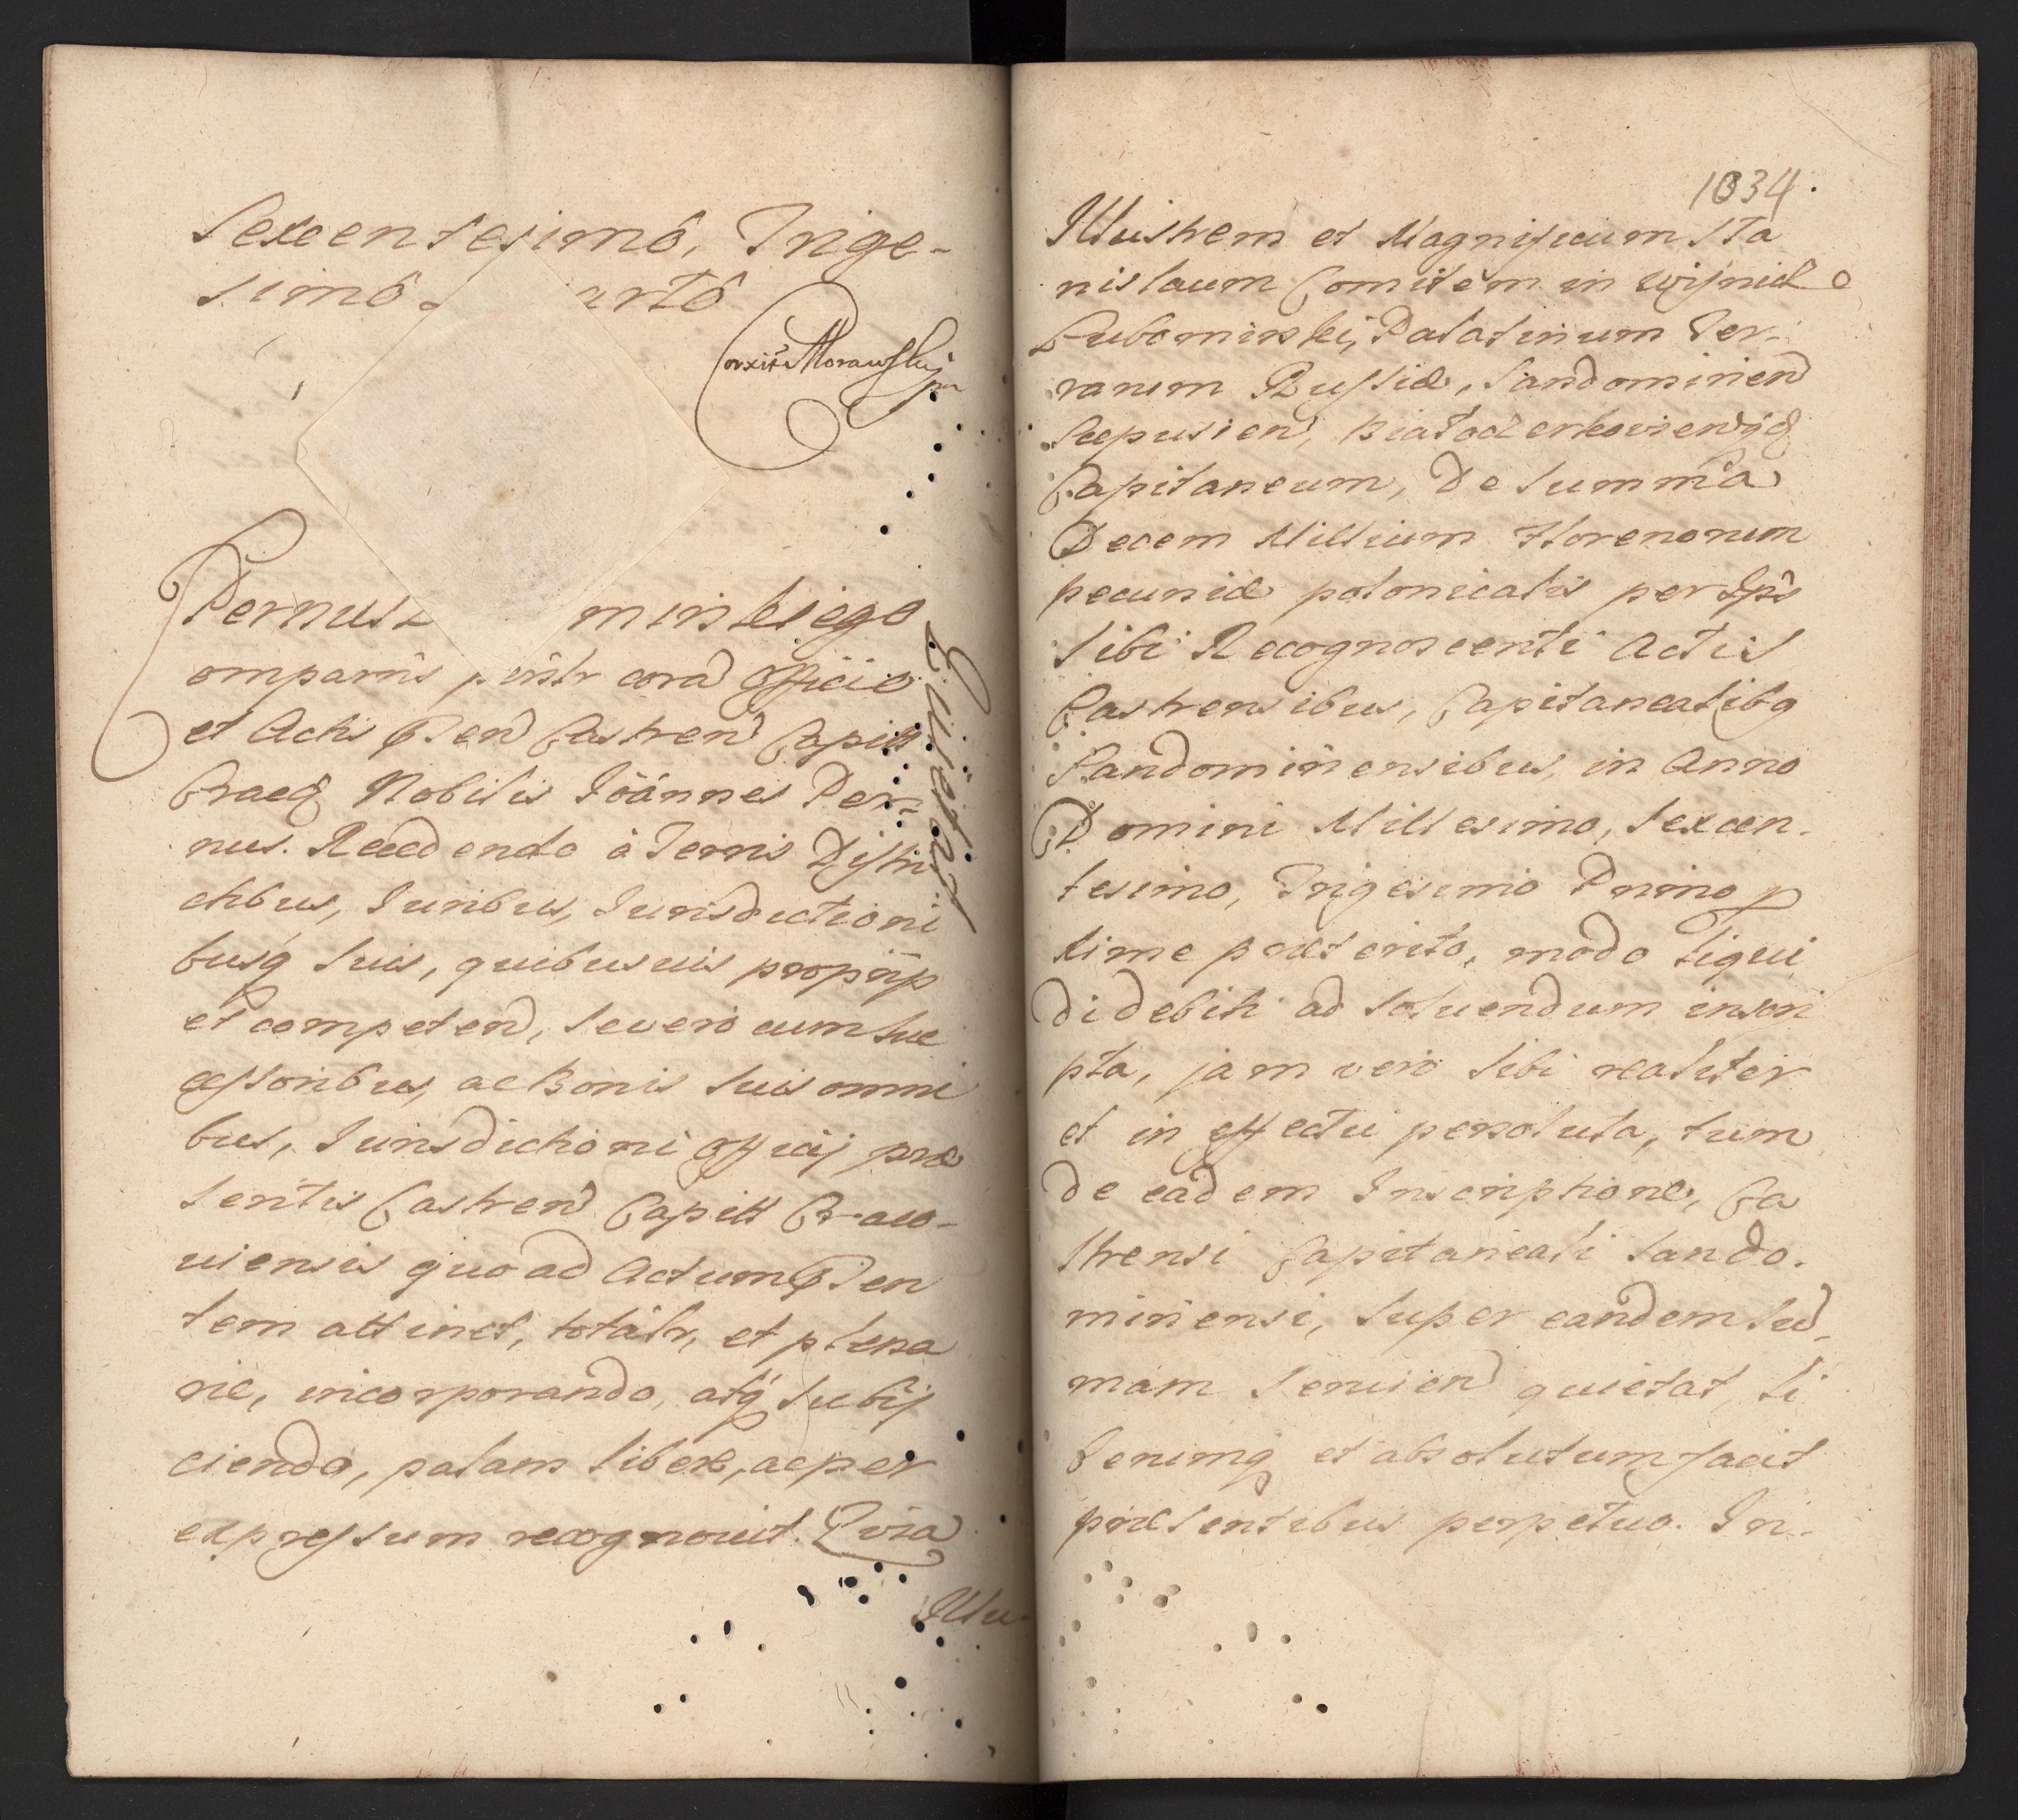 Sexcentesimô, Trige-
simô urtô
Corxit Morawskij
Pernus minskiego
Quietat
omparens psntr corā Officio
et Actis pñsen Castren Capit
Cracq Nobilis Ioannes Per-
nus. Recedendo à Terris Distri
ctibus, Iuribus, Iurisdictioni
busq Suis, quibusuis proprijs
et competen, Severo cum Suc
cessoribus, ac Bonis Suis omni
bus, Iurisdictioni Officij præ
sentis Castren Capitt Craco-
uiensis quo ad Actum pñsen
tem attinet, totalr, et plena
rie, incorporando, atq Subij
ciendo, palam libere, ac per
expressum recognouit. Quia
Illu-
1034.
Illustrem et Magnificum Sta
nislaum Comitem in Wisnicz
Lubomirski, Palatinum Ter-
rarum Russiæ, Sandomirien
Scepusien, Białocerkovienqq
Capitaneum, De Summa
Decem Millium Florenorum
pecuniæ polonicalis per Ips
Sibi Recognoscenti Actis
Castrensibus, Capitanealibq
Sandomiriensibus, in Anno
Domini Millesimo, Sexcen-
tesimo, Trigesimo Primo p
xime præterito, modo liqui
di debiti ad Soluendum inscri
pta, jam vero Sibi realiter
et in effectu persoluta, tum
de eadem Inscriptione, Ca
strensi Capitaneali Sando-
miriensi, Super eandem Sum-
mam Seruien quietat, li
berumq et absolutum facit
præsentibus perpetuo. In-